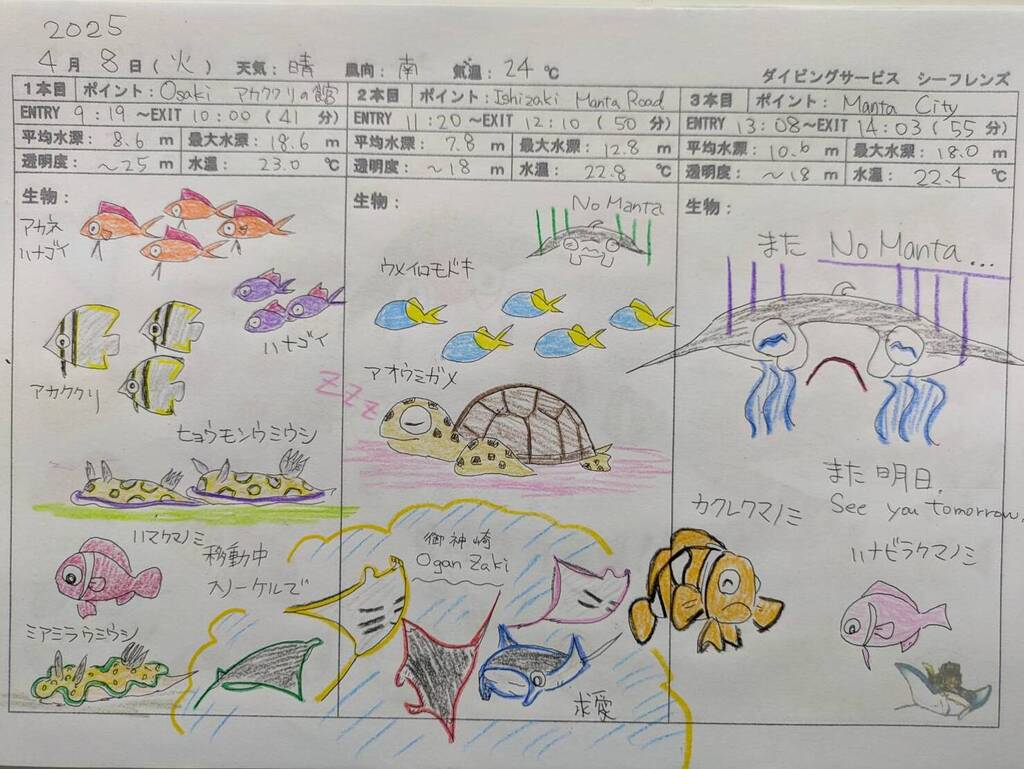 2025
4月 8日(火) 天気: 晴 風向: 南 気温: 24 ℃
ダイビングサービス シーフレンズ
1本目 ポイント: Osaki アカククリの館
ENTRY 9:19~EXIT 10:00 (41 分)
平均水深: 8.6 m 最大水深: 18.6 m
透明度: ~25 m 水温: 23.0 ℃
生物:
アカネ
ハナゴイ
ハナゴイ
アカククリ
ヒョウモンウミウシ
ハマクマノミ
移動中
スノーケルで
ミアミラウミウシ
2本目 ポイント: Ishizaki Manta Road
ENTRY 11:20~EXIT 12:10 (50 分)
平均水深: 7.8 m 最大水深: 12.8 m
透明度: ~18 m 水温: 22.8 ℃
生物:
No Manta
ウメイロモドキ
アオウミガメ
ZZZ
御神崎
Ogan Zaki
求愛
3本目 ポイント: Manta City
ENTRY 13:08~EXIT 14:03 (55 分)
平均水深: 10.6 m 最大水深: 18.0 m
透明度: ~18 m 水温: 22.4 ℃
生物:
また No Manta...
また明日.
See you tomorrow.
カクレクマノミ
ハナビラクマノミ